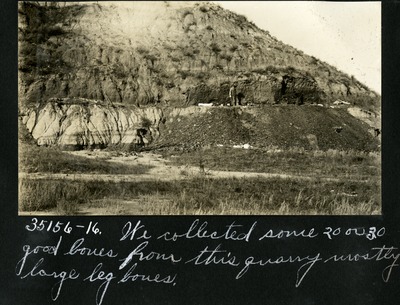 35156-16. We collected some 20 or 30
good bones from this quarry mostly
large leg bones.